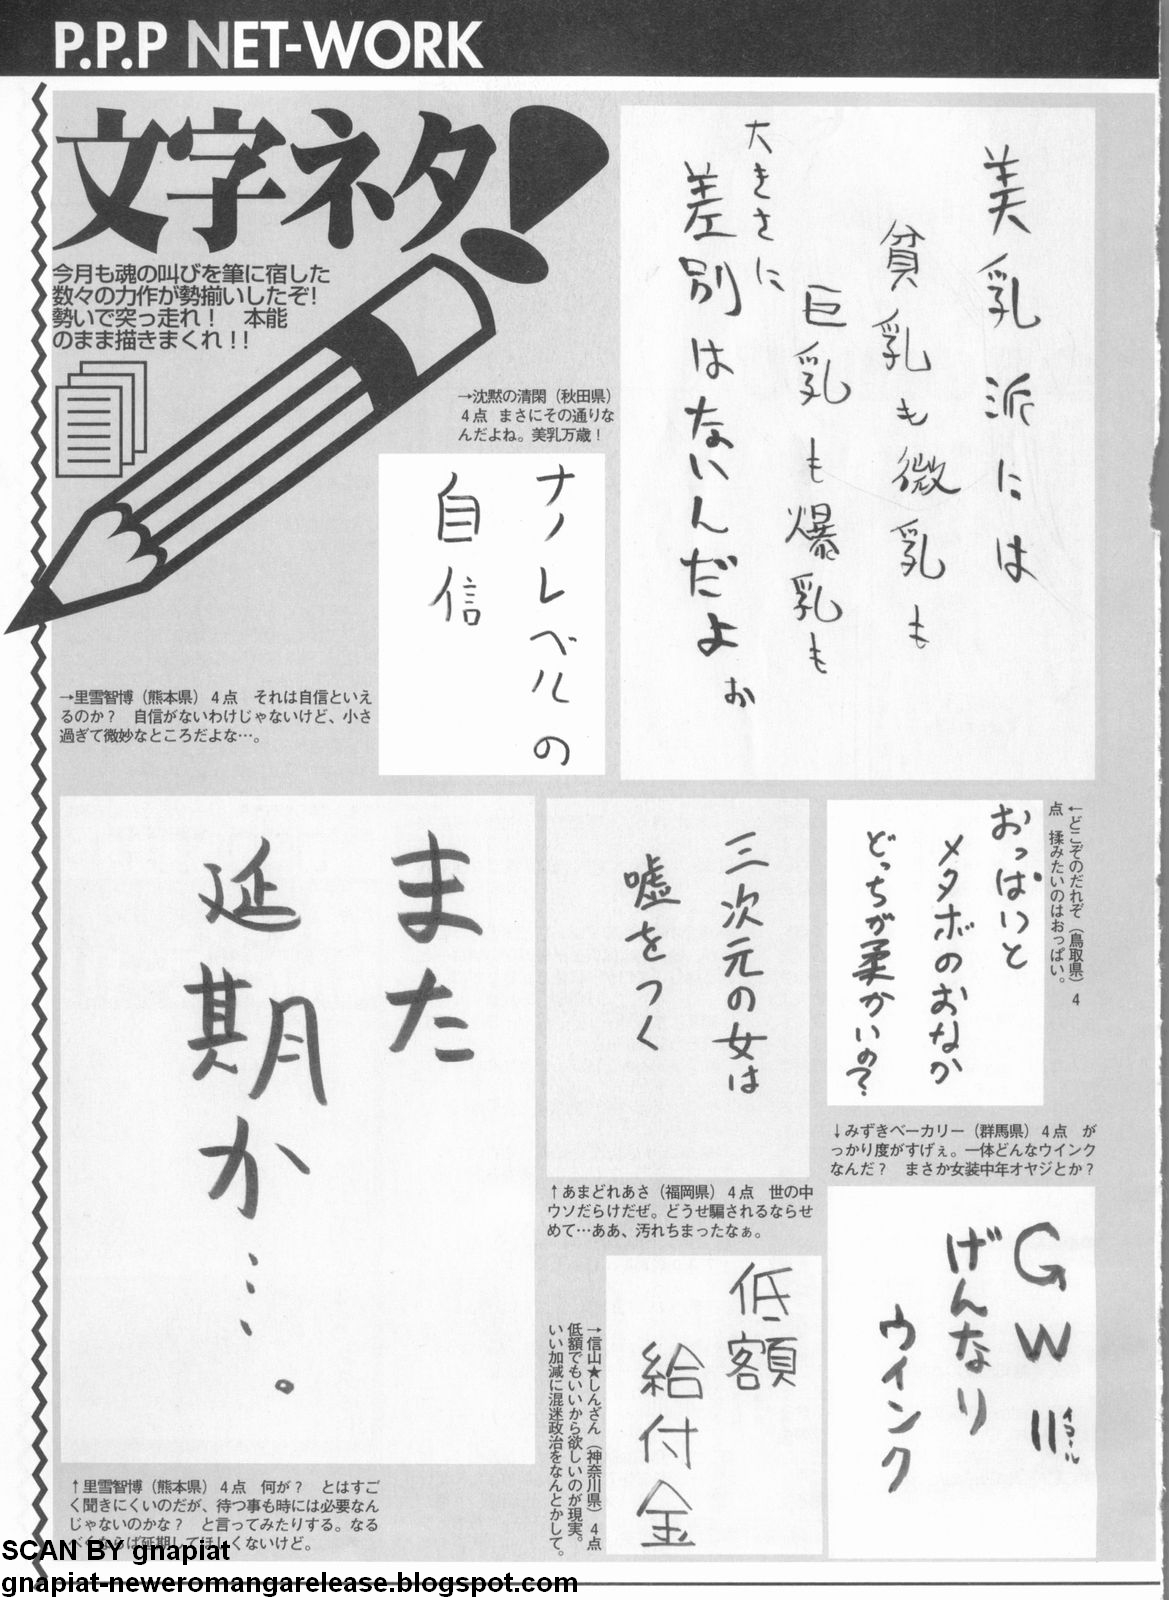 P.P.P NET-WORK
文字ネタ
今月も魂の叫びを筆に宿した
数々の力作が勢揃いしたぞ!
勢いで突っ走れ！　本能
のまま描きまくれ！！
美乳派には
貧乳も微乳も
巨乳も爆乳も
大きさに
差別はないんだよぉ
→沈黙の清閑（秋田県）
４点　まさにその通りな
んだよね。美乳万歳！
ナノレベルの
自信
→里雪智博（熊本県）４点　それは自信といえ
るのか？　自信がないわけじゃないけど、小さ
過ぎて微妙なところだよな…。
←どこぞのだれぞ（鳥取県）４
点　揉みたいのはおっぱい。
おっぱいと
メタボのおなか
どっちが柔かいの？
三次元の女は
嘘をつく
また
延期か…。
↓みずきベーカリー（群馬県）４点　が
っかり度がすげぇ。一体どんなウインク
なんだ？　まさか女装中年オヤジとか？
↑あまどれあさ（福岡県）４点　世の中
ウソだらけだぜ。どうせ騙されるならせ
めて…ああ、汚れちまったなぁ。
GW＝イコール
げんなり
ウインク
低額
給付金
→信山★しんざん（神奈川県）４点
低額でもいいから欲しいのが現実。
いい加減に混迷政治をなんとかして。
↑里雪智博（熊本県）４点　何が？　とはすご
く聞きにくいのだが、待つ事も時には必要なん
じゃないのかな？　と言ってみたりする。なる
べくならば延期してほしくないけど。
SCAN BY gnapiat
gnapiat-neweromangarelease.blogspot.com